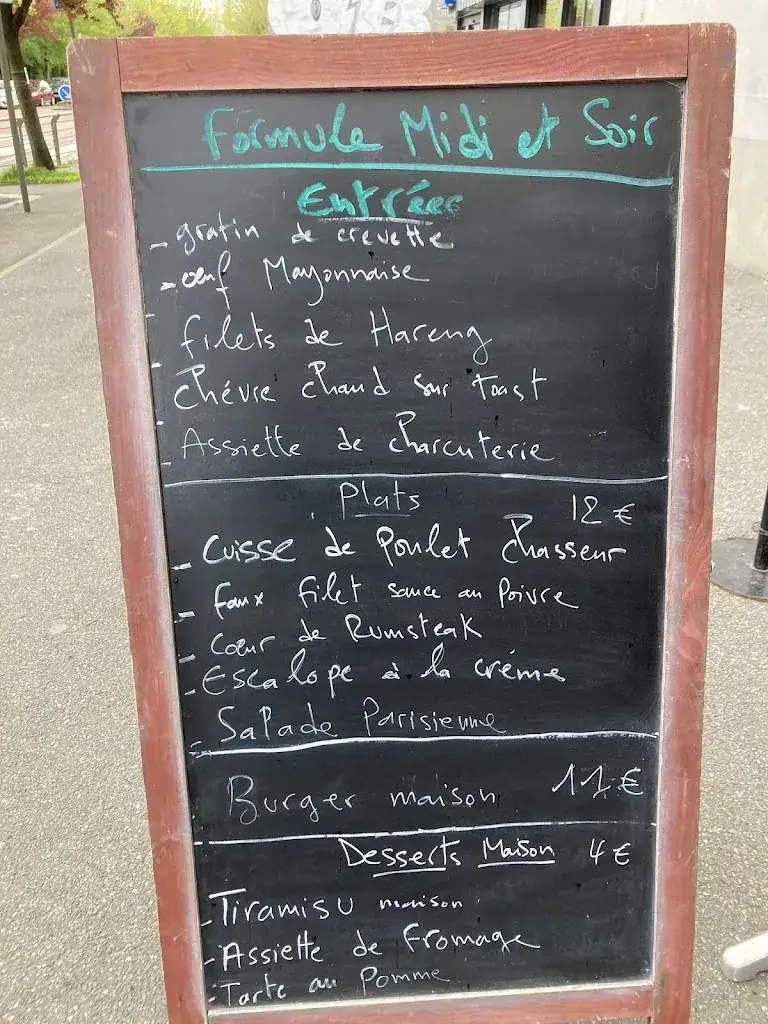 Formule Midi et Soir
Entrées
- gratin de crevette
- œuf Mayonnaise
- filets de Hareng
- chévre chaud sur toast
- Assiette de charcuterie
Plats 12 €
- Cuisse de Poulet chasseur
- faux filet sauce au Poivre
- Cœur de Rumsteak
- Escalope à la créme
- Salade Parisienne
Burger maison 11 €
Desserts Maison 4 €
- Tiramisu maison
- Assiette de Fromage
- Tarte au Pomme